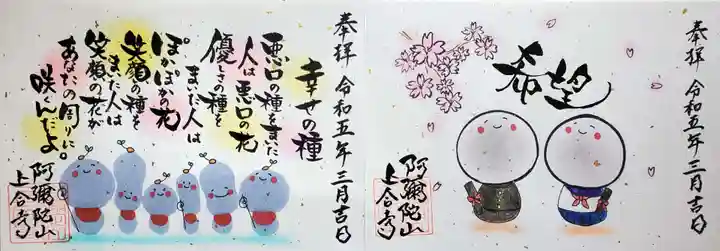 奉拝 令和五年三月吉日
希望
阿彌陀山
上合寺
奉拝 令和五年三月吉日
幸せの種
悪口の種をまいた
人は悪口の花
優しさの種を
まいた人は
ぽかぽかの花
笑顔の種を
まいた人は
笑顔の花が
あなたの周りに。
咲くんだよ
阿彌陀山
上合寺